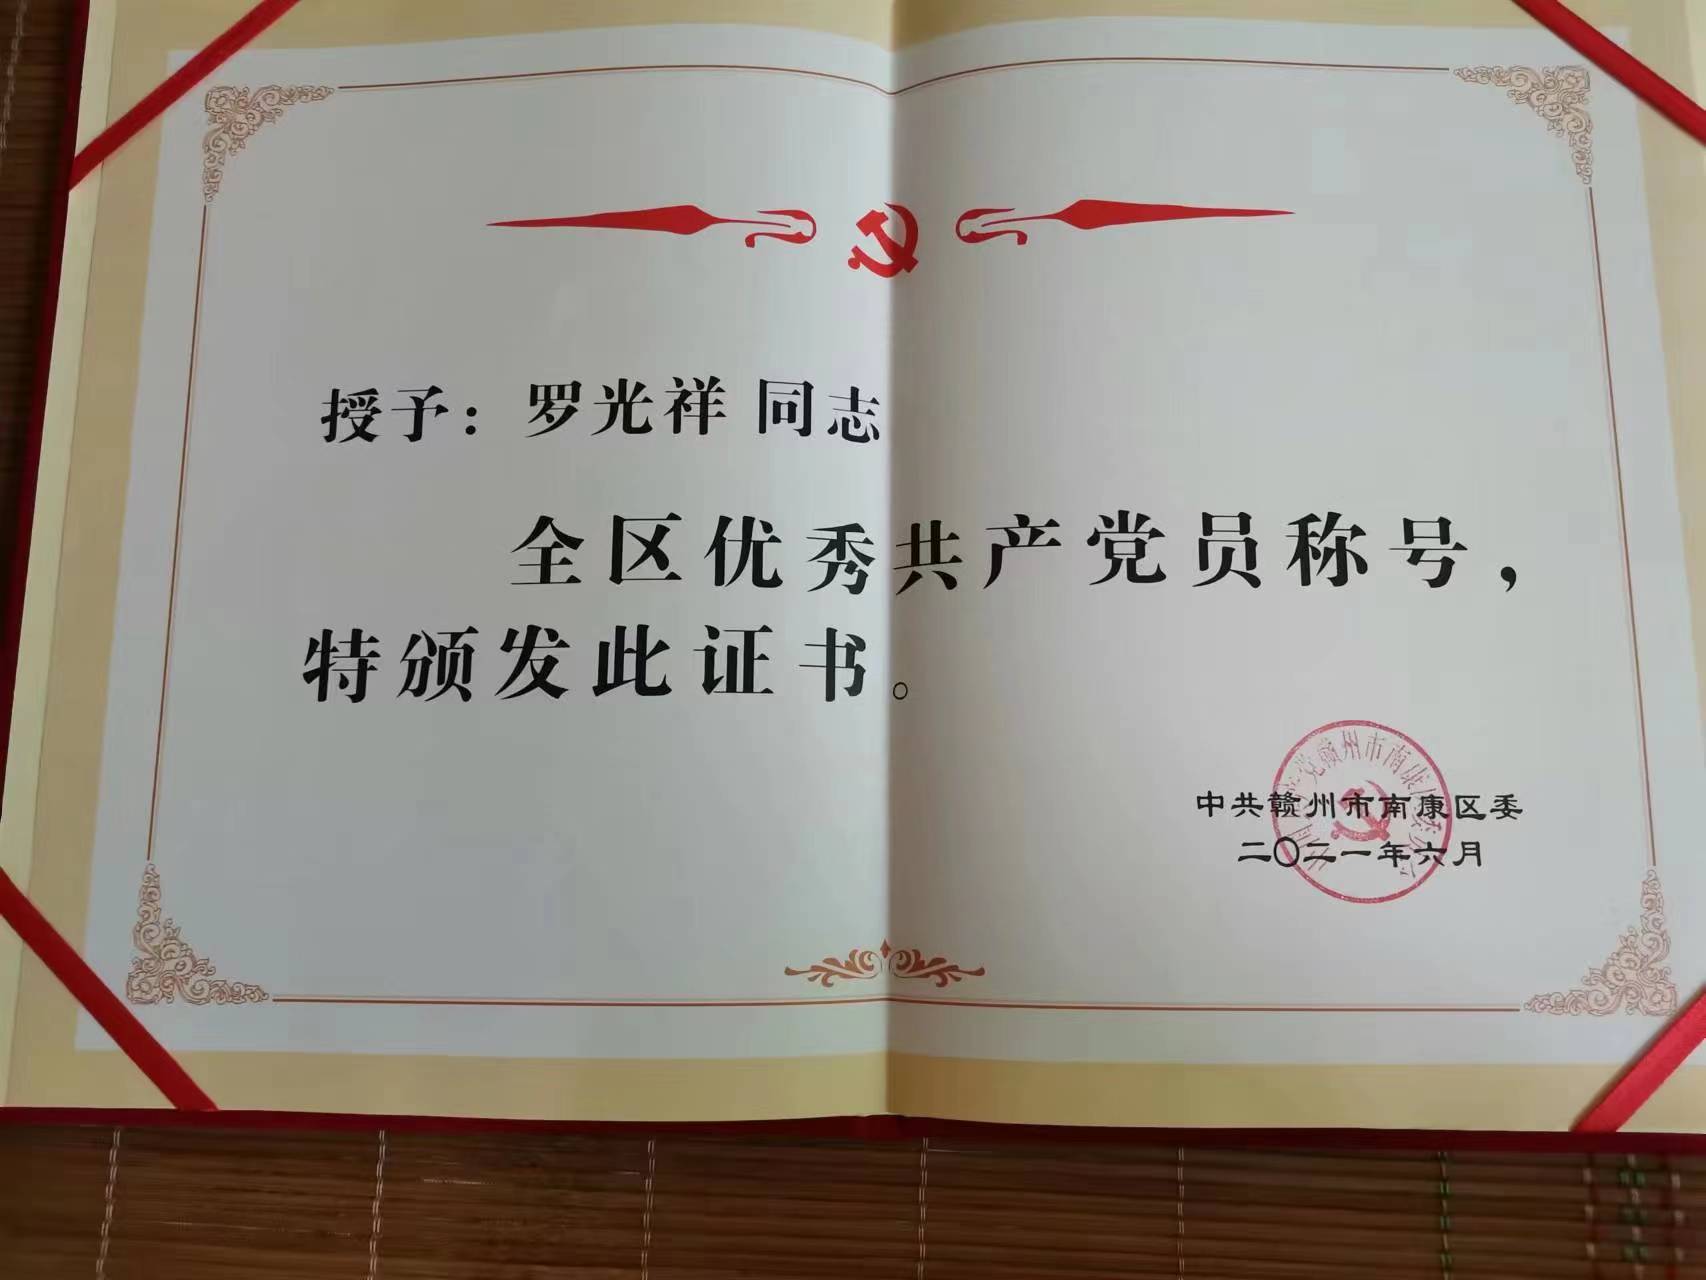 授予：罗光祥 同志
全区优秀共产党员称号，
特颁发此证书。
中共赣州市南康区委
二〇二一年六月